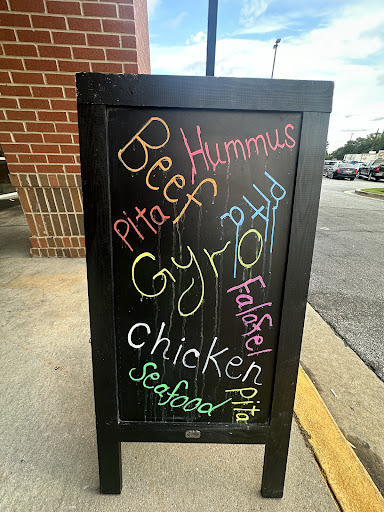 Beef
Hummus
Pita
Pita
Gyro
Falafel
chicken
Seafood
Pita